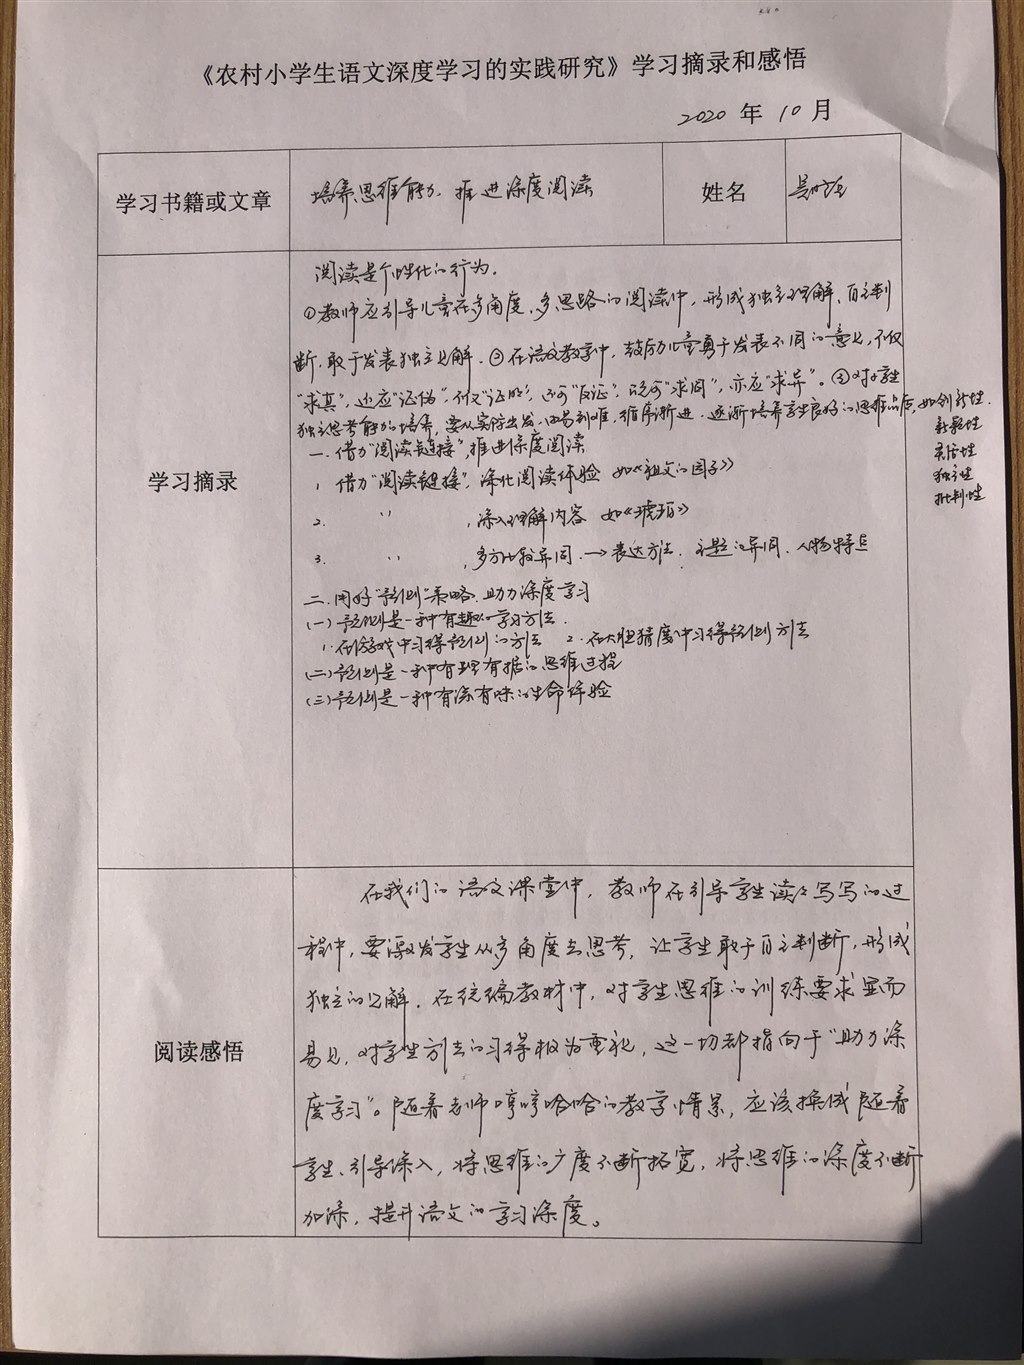 《农村小学生语文深度学习的实践研究》学习摘录和感悟
2020 年 10 月
学习书籍或文章
培养思维能力，推进深度阅读
姓名
学习摘录
阅读是个性化的行为.
①教师应引导儿童在多角度、多思路的阅读中，形成独立理解、自主判
断，敢于发表独立见解.②在语文教学中，鼓励儿童勇于发表不同的意见，不仅
“求真”，还应“证伪”，不仅“证明”，还可“反证”，既可“求同”，亦应“求异”。③对小学生
独立思考能力的培养，要从实际出发，由易到难，循序渐进，逐渐培养学生良好的思维品质，如创新性.
新颖性
灵活性
独立性
批判性
一.借力“阅读链接”，推进深度阅读
1. 借力“阅读链接”，深化阅读体验 如《祖父的园子》
2. 〃 ，深入理解内容 如《琥珀》
3. 〃 ，多方比较异同 → 表达方法、主题的异同、人物特点
二.用好“预测”策略，助力深度学习
(一)预测是一种有趣的学习方法.
1.在游戏中习得预测的方法 2.在大胆猜度中习得预测方法
(二)预测是一种有理有据的思维过程
(三)预测是一种有滋有味的生命体验
阅读感悟
在我们的语文课堂中，教师在引导学生读读写写的过
程中，要激发学生从多角度去思考，让学生敢于自主判断，形成
独立的见解.在统编教材中，对学生思维的训练要求显而
易见，对学生方法的习得极为重视，这一切都指向于“助力深
度学习”。随着老师哼哼哈哈的教学情景，应该换成随着
学生、引导深入，将思维的广度不断拓宽，将思维的深度不断
加深，提升语文的学习深度。